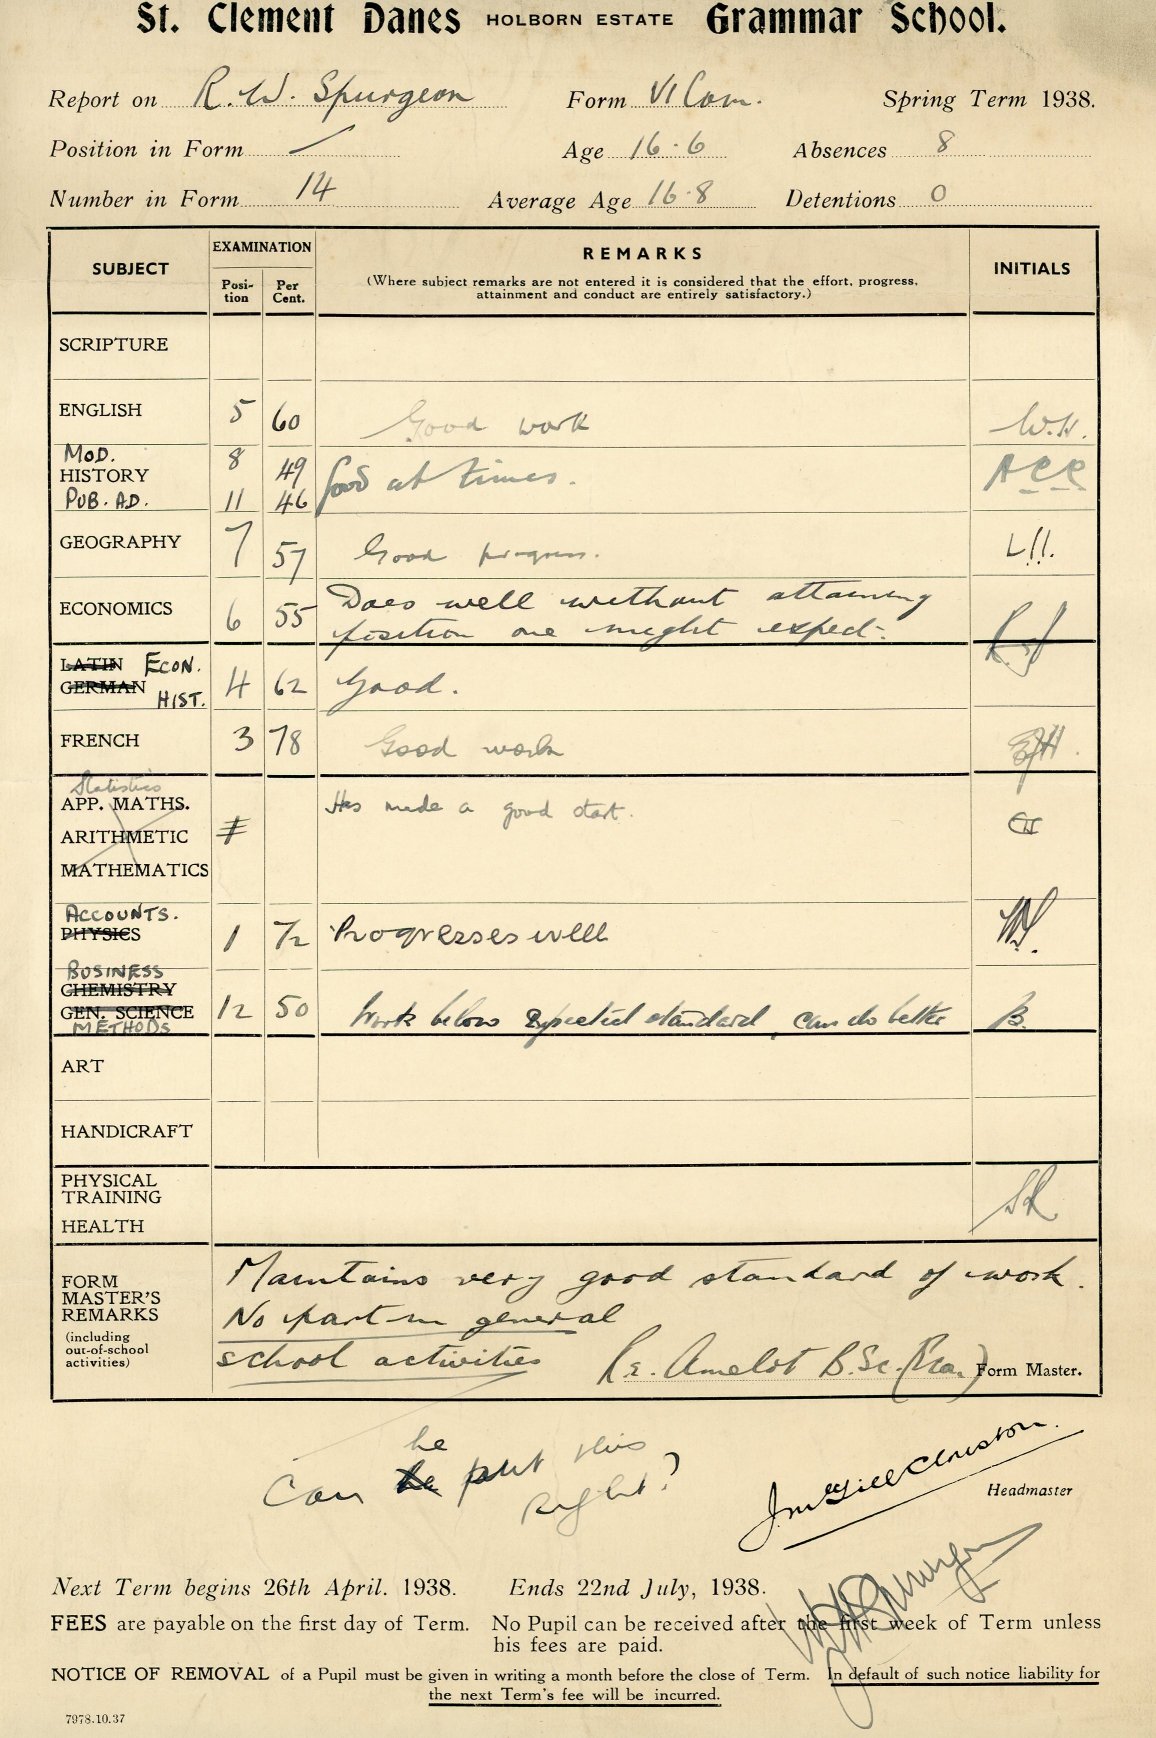 St. Clement Danes HOLBORN ESTATE Grammar School.
Report on R. W. Spurgeon Form VI Com. Spring Term 1938.
Position in Form Age 16.6 Absences 8
Number in Form 14 Average Age 16.8 Detentions 0
SUBJECT EXAMINATION REMARKS INITIALS
Posi-tion Per Cent. (Where subject remarks are not entered it is considered that the effort, progress,
attainment and conduct are entirely satisfactory.)
SCRIPTURE
ENGLISH 5 60 Good work W.H.
MOD. 8 49
HISTORY Good at times. ACR
PUB. AD. 11 46
GEOGRAPHY 7 57 Good progress.
ECONOMICS 6 55 Does well without attaining
position one might expect.
LATIN ECON.
GERMAN HIST. 4 62 Good.
FRENCH 3 78 Good work
Statistics
APP. MATHS. Has made a good start.
ARITHMETIC
MATHEMATICS
ACCOUNTS.
PHYSICS 1 72 Progresses well
BUSINESS
CHEMISTRY
GEN. SCIENCE 12 50 Work below expected standard, can do better B.
METHODS
ART
HANDICRAFT
PHYSICAL
TRAINING
HEALTH
FORM MASTER'S REMARKS
(including out-of-school activities)
Maintains very good standard of work.
No part in general
school activities
Amelot B.Sc. Form Master.
Can he put this
right?
J. McGill Clouston.
Headmaster
Spurgeon
Next Term begins 26th April. 1938. Ends 22nd July, 1938.
FEES are payable on the first day of Term. No Pupil can be received after the first week of Term unless
his fees are paid.
NOTICE OF REMOVAL of a Pupil must be given in writing a month before the close of Term. In default of such notice liability for
the next Term's fee will be incurred.
7978.10.37